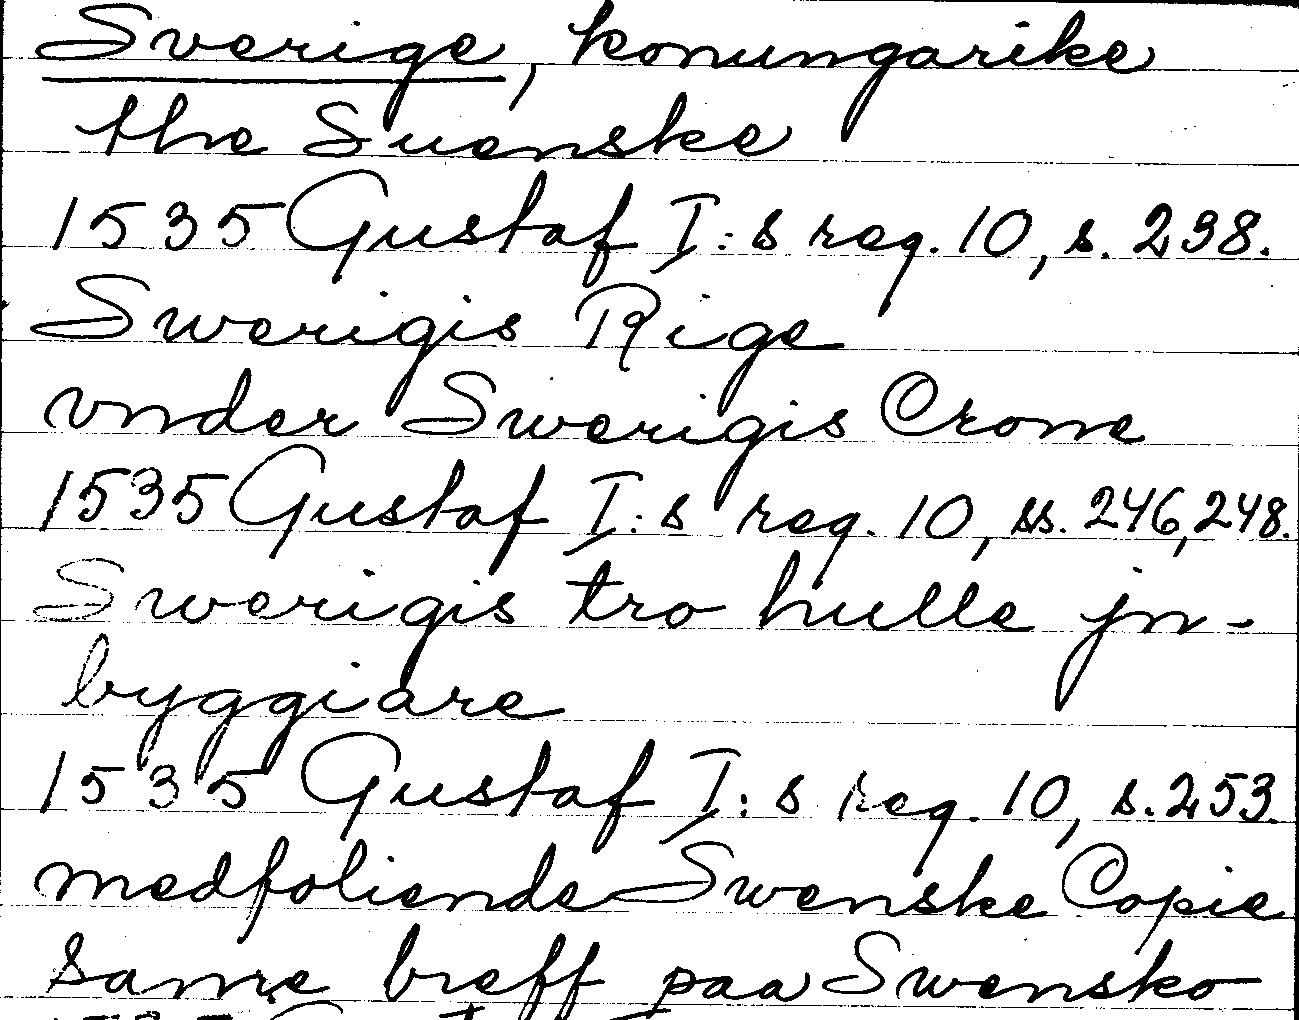 Sverige, konungarike
the Suenske
1535 Gustaf I:s reg. 10, s. 238.
Swerigis Rige
vnder Swerigis Crone
1535 Gustaf I:s reg. 10, ss. 246, 248.
Swerigis tro hulle jn-
byggiare
1535 Gustaf I:s reg. 10, s. 253.
medfoliende Swenske Copie
same breff paa Swensko